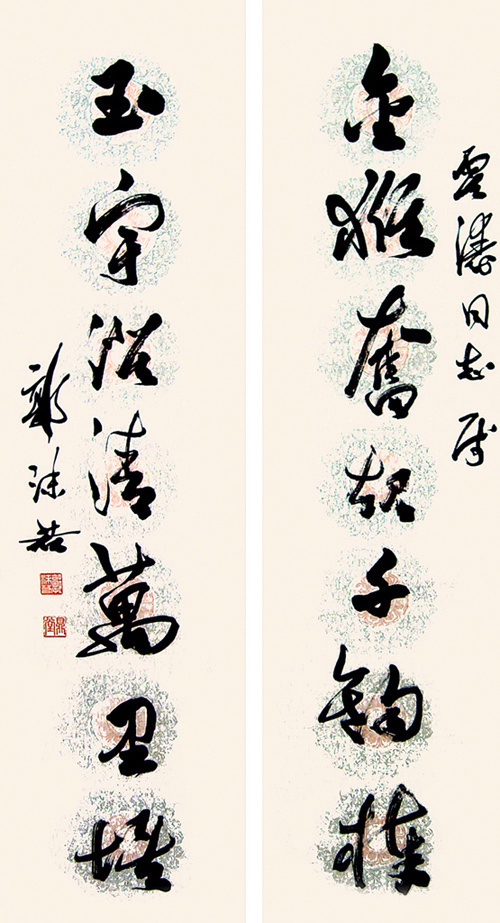 雲濤同志属
金猴奮起千鈞棒
玉宇澄清萬里埃
郭沫若